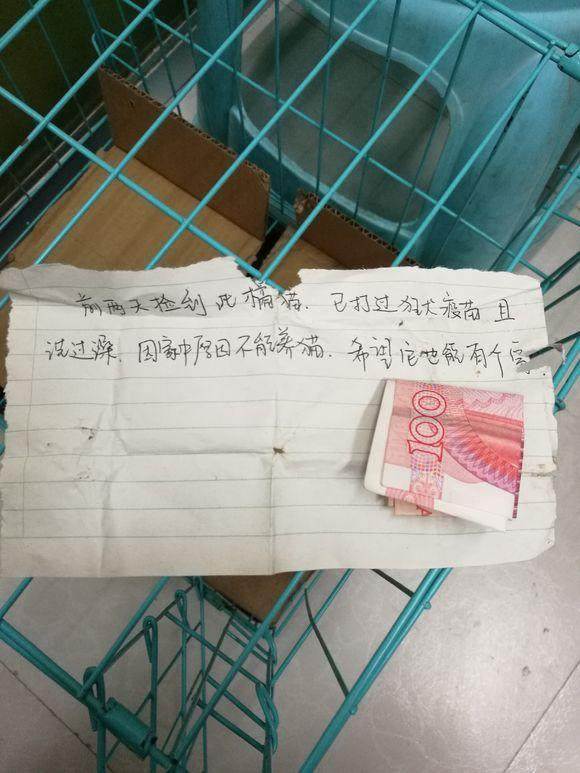 前两天捡到此橘猫. 已打过狂犬疫苗且
洗过澡. 因家中原因不能养猫. 希望它也能有个家.
100